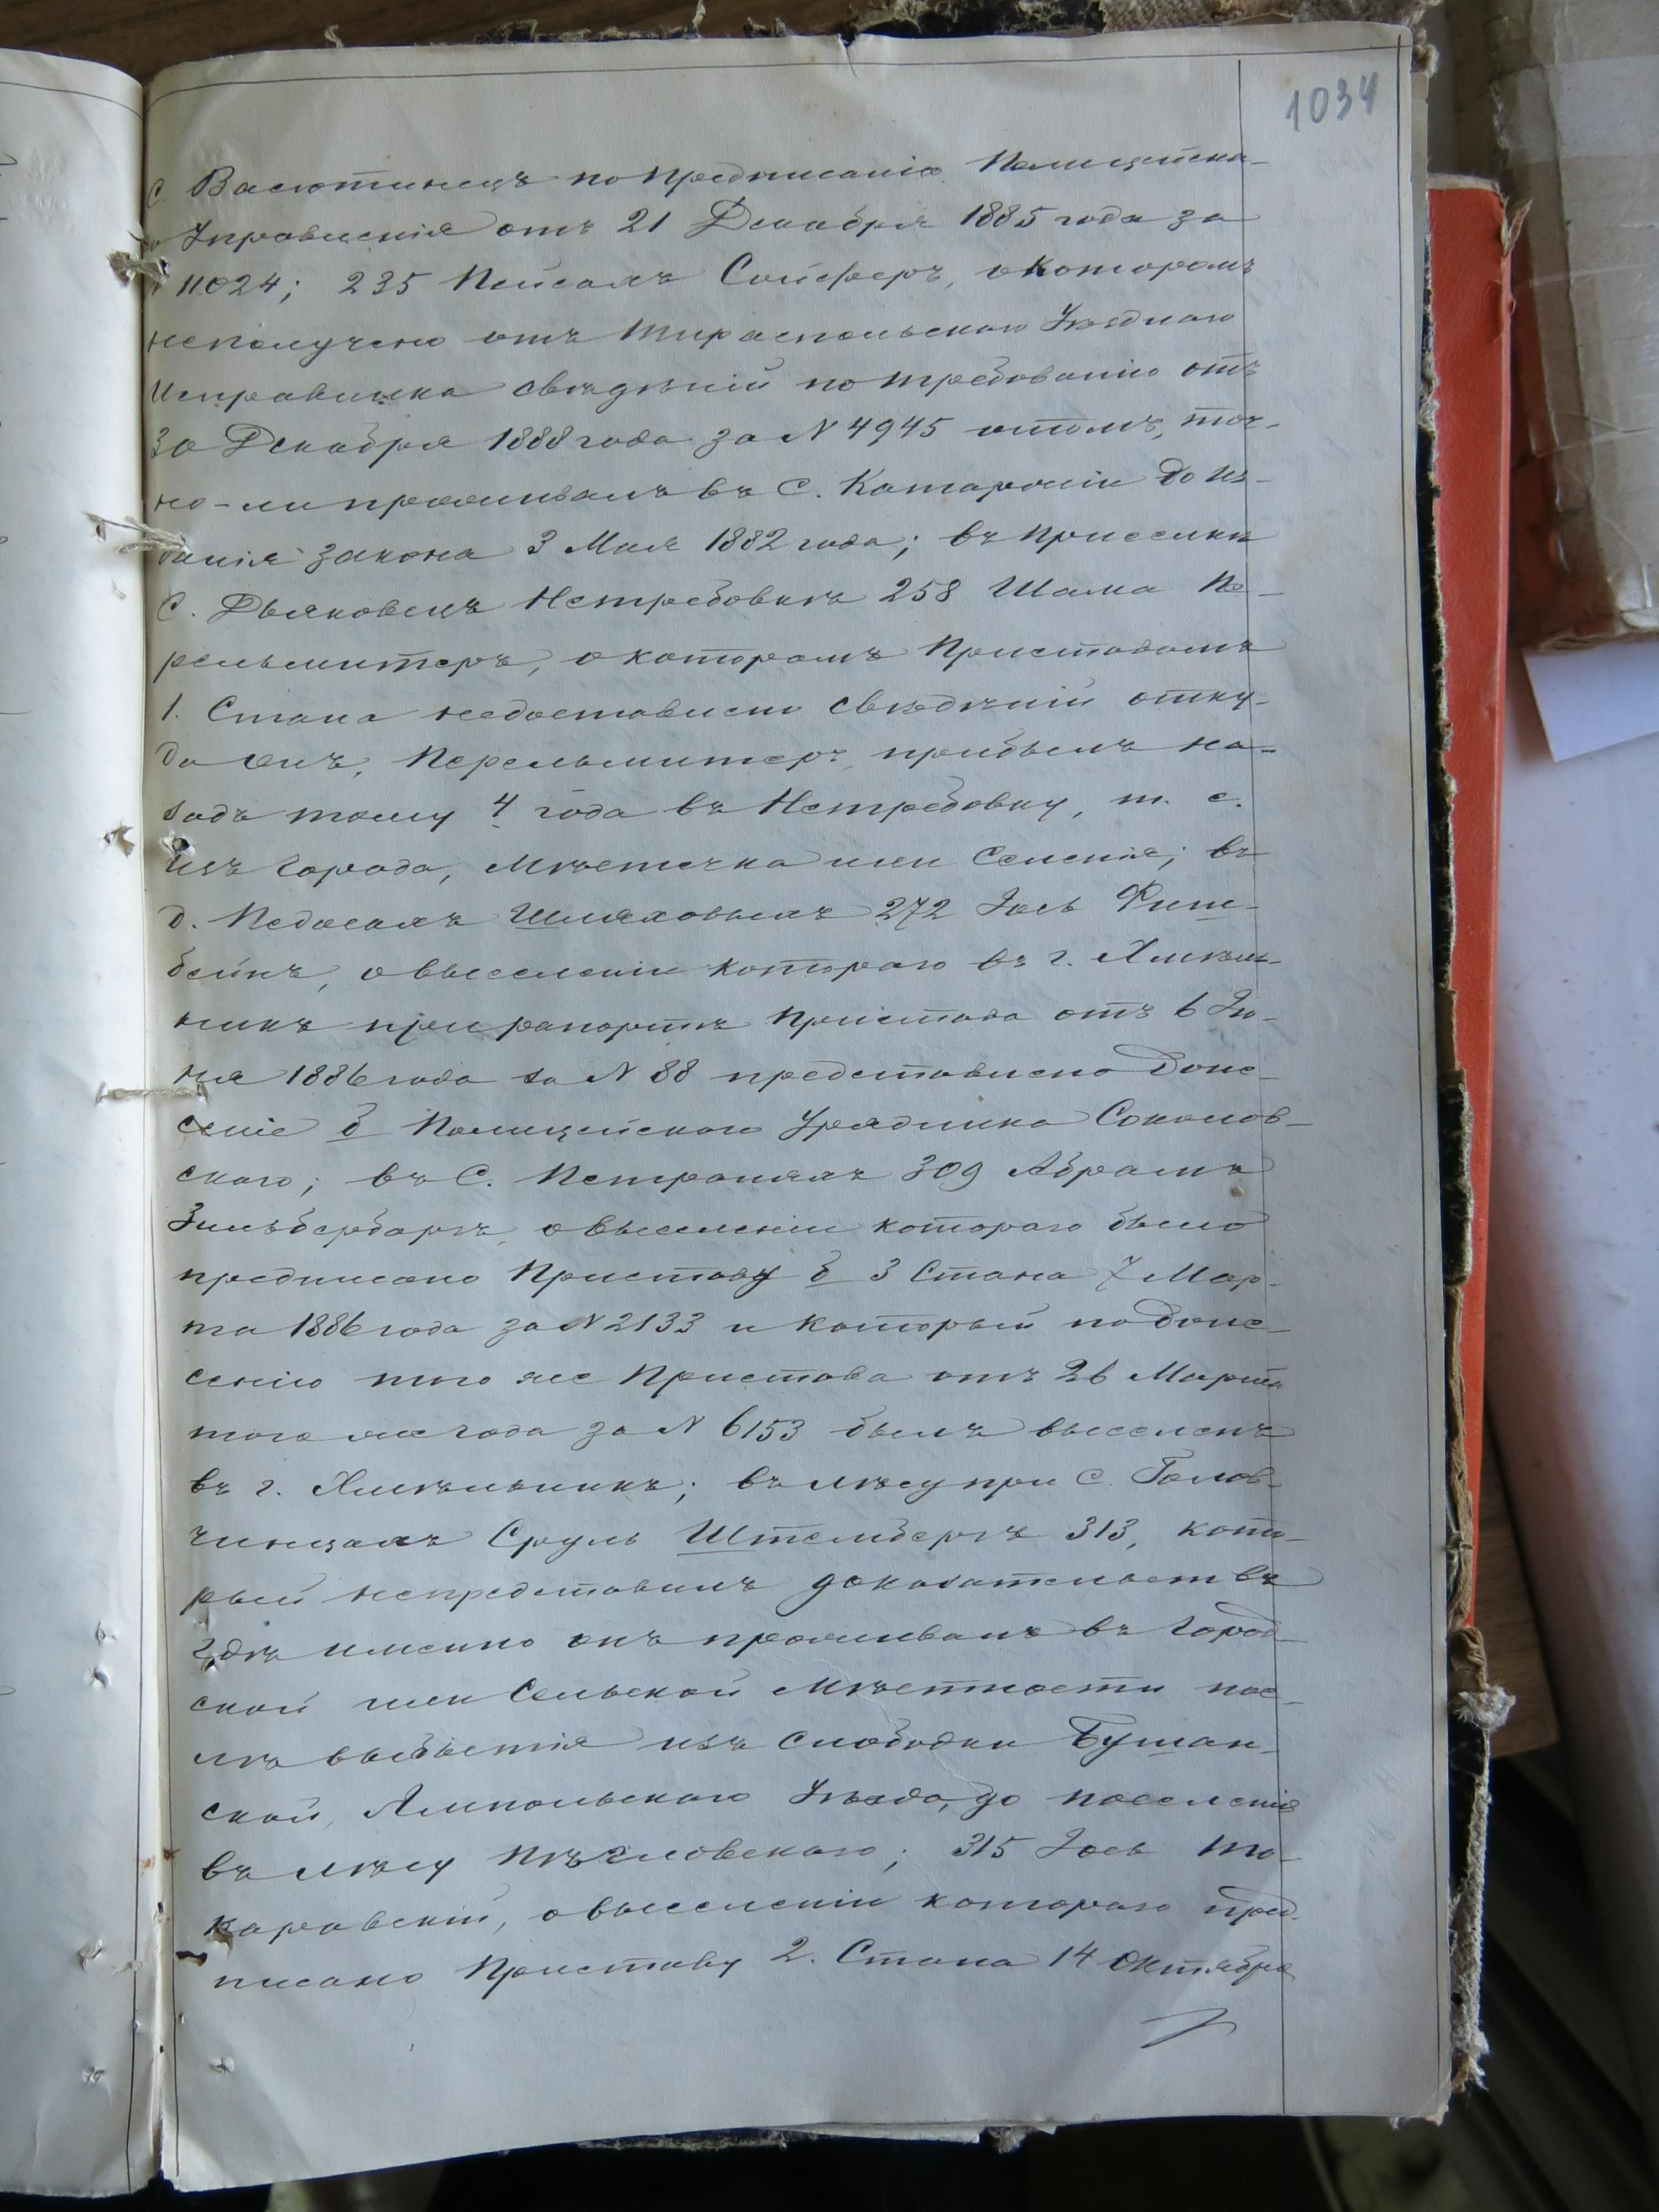 1034
С. Васютинецъ по предписанію Полицейска-
го Управленія отъ 21 Декабря 1885 года за
№ 11024; 235 Пейсахъ Сойферъ, о которомъ
неполучено отъ Тираспольскаго Уѣзднаго
Исправника свѣдѣній по требованію отъ
30 Декабря 1888 года за N 4945 о томъ, точ-
но-ли проживалъ въ С. Катаржіи до из-
данія закона 3 Мая 1882 года; въ приселкѣ
С. Дьяковецъ Нетребовкѣ 258 Шама Пе-
рельмитеръ, о которомъ Приставомъ
1. Стана недоставлено свѣдѣній отку-
да онъ, Перельмитеръ, прибылъ на-
задъ тому 4 года въ Нетребовку, т. е.
изъ города, мѣстечка или селенія; въ
д. Подосахъ Шляховыхъ 272 Іось Фиш-
бейнъ, о выселеніи котораго въ г. Хмѣль-
никъ при рапортѣ Пристава отъ 6 Ію-
ня 1886 года за N 88 представлено доне-
сеніе б Полицейскаго Урядника Соколов-
скаго; въ С. Петраняхъ 309 Абрамъ
Зильбербаргъ, о выселеніи котораго было
предписано Приставу б 3 Стана 7 Мар-
та 1886 года за N 2133 и который по доне-
сенію того же Пристава отъ 26 Марта
того же года за N 6153 былъ выселенъ
въ г. Хмѣльникъ; въ лѣсу при С. Голов-
чинцахъ Сруль Штелбергъ 313, кото-
рый непредставилъ доказательствъ
гдѣ именно онъ проживалъ въ город-
ской или сельской мѣстности пос-
лѣ выбытія изъ слободки Бушан-
ской, Ямпольскаго Уѣзда, до поселенія
въ лѣсу Пѣгловскаго; 315 Іось То-
каровскій, о выселеніи котораго пред-
писано Приставу 2. Стана 14 Октября